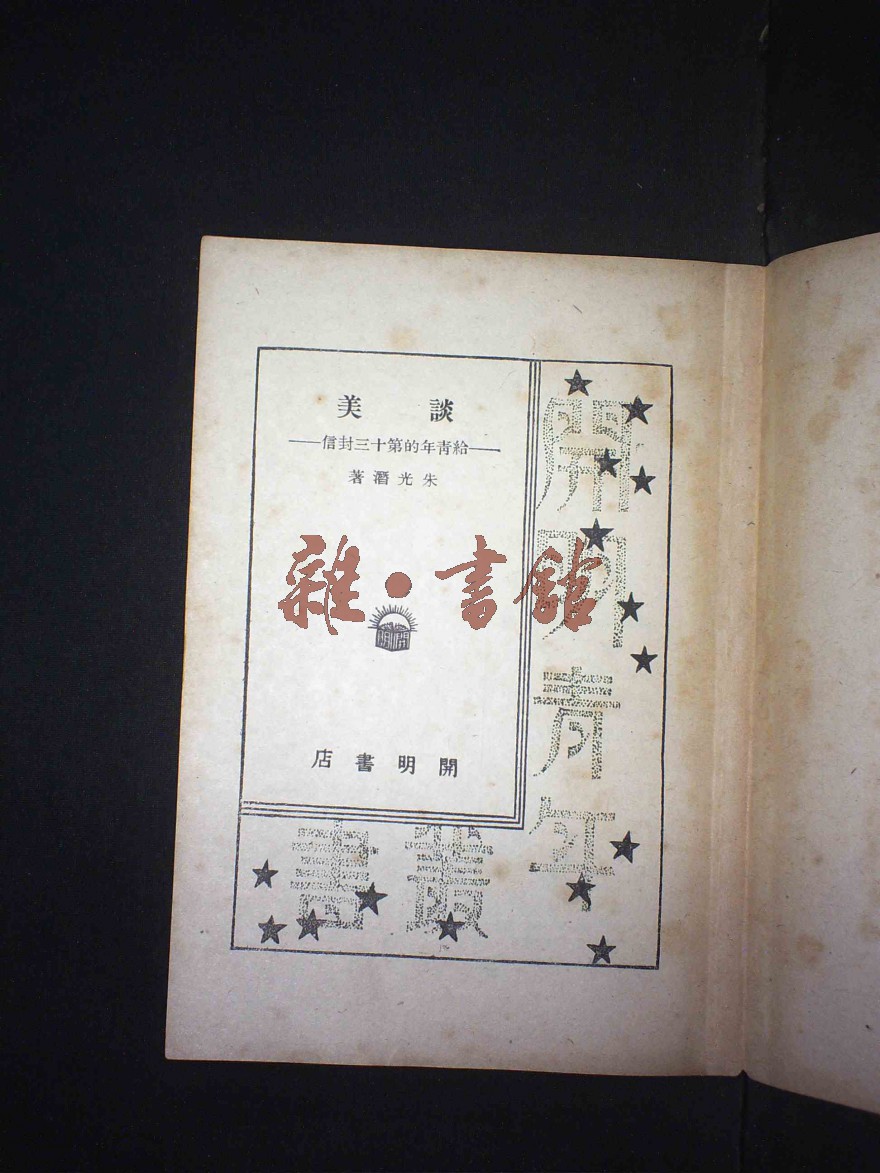 談美
——給青年的第十三封信——
朱光潛著
雜·書館
開明
開明書店
開明青年
叢書